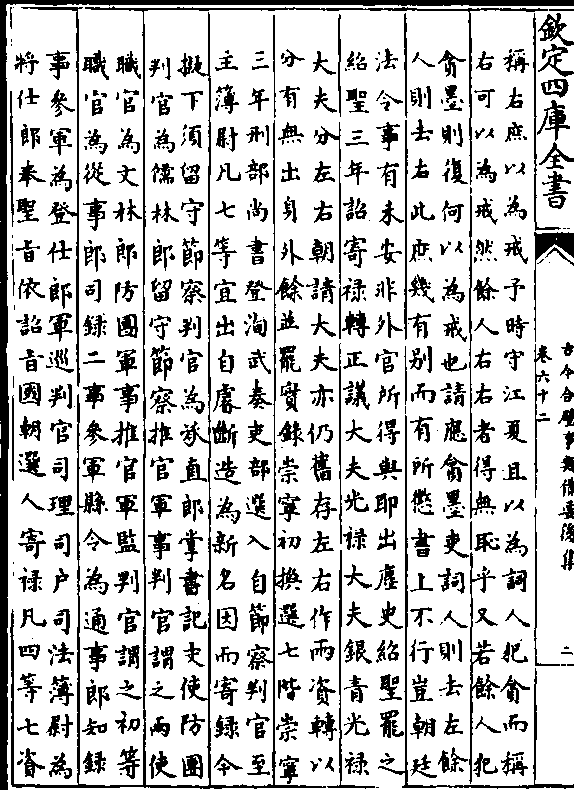 欽定四庫全書
古今合璧事類備要後集
卷六十二
二
稱右庶以為戒予時守江夏且以為詞人犯貪而稱
右可以為戒然餘人右右者得無恥乎又若餘人犯
貪墨則復何以為戒也請應貪墨吏詞人則去左餘
人則去右此庶幾有别而有所懲書上不行豈朝廷
法令事有未安非外官所得與耶出塵史紹聖罷之
紹聖三年詔寄禄轉正議大夫光禄大夫銀青光禄
大夫分左右朝請大夫亦仍舊存左右作兩資轉以
分有無出身外餘並罷實録崇寧初換選七階崇寧
三年刑部尚書登洵武奏吏部選入自節察判官至
主簿尉凡七等宜出自睿斷造為新名因而寄録今
擬下須留守節察判官為承直郎掌書記支使防團
判官為儒林郎留守節察推官軍事判官謂之兩使
職官為文林郎防團軍事推官軍監判官謂之初等
職官為從事郎司録二事參軍縣令為通事郎知録
事參軍為登仕郎軍巡判官司理司户司法簿尉為
將仕郎奉聖旨依詔旨國朝選人寄禄凡四等七資